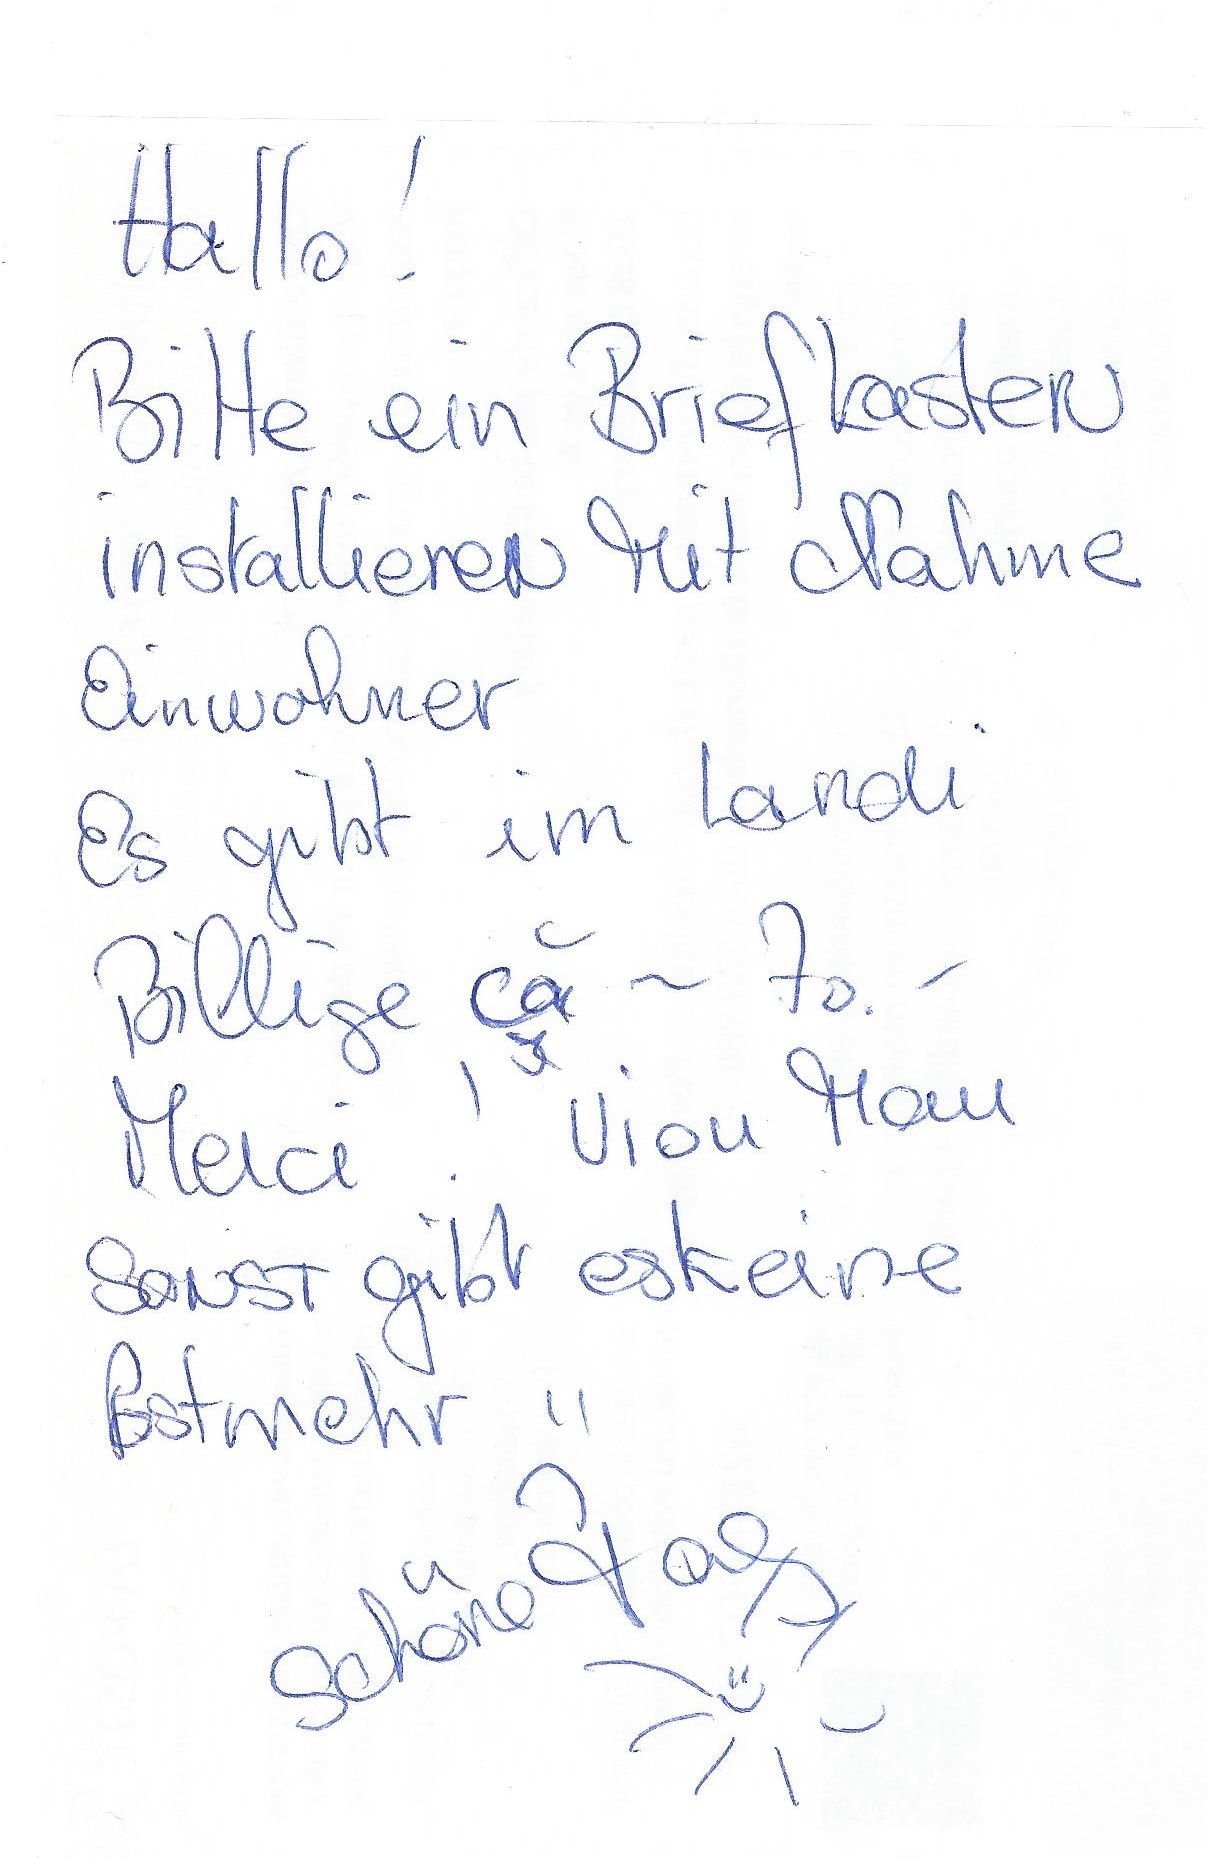 Hallo!
Bitte ein Briefkasten
installieren Mit Nahme
Einwohner
Es gibt im Landi
Billige ca ~ 70.-
Merci !
Sonst gibt es keine
Post mehr "
schöne Tag